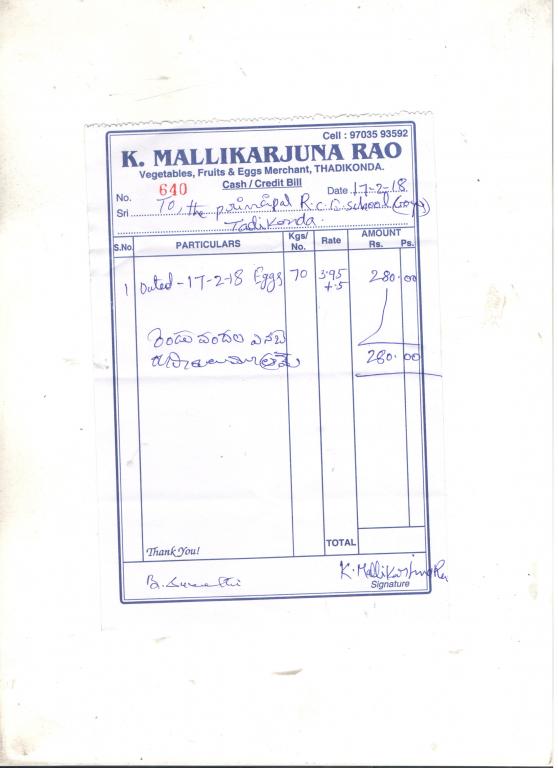 Cell : 97035 93592
K. MALLIKARJUNA RAO
Vegetables, Fruits & Eggs Merchant, THADIKONDA.
Cash / Credit Bill
No. 640 Date 17-2-18
Sri To, the principal R.C.B. school (Boys)
Tadikonda.
S.No. PARTICULARS Kgs/No. Rate AMOUNT Rs. Ps.
1 Dated-17-2-18 Eggs 70 3.95 +.5 280.00
రెండు వందల ఎనభై
రూపాయలు మాత్రమే 280.00
TOTAL
Thank You!
K. Mallikarjuna Rao
Signature